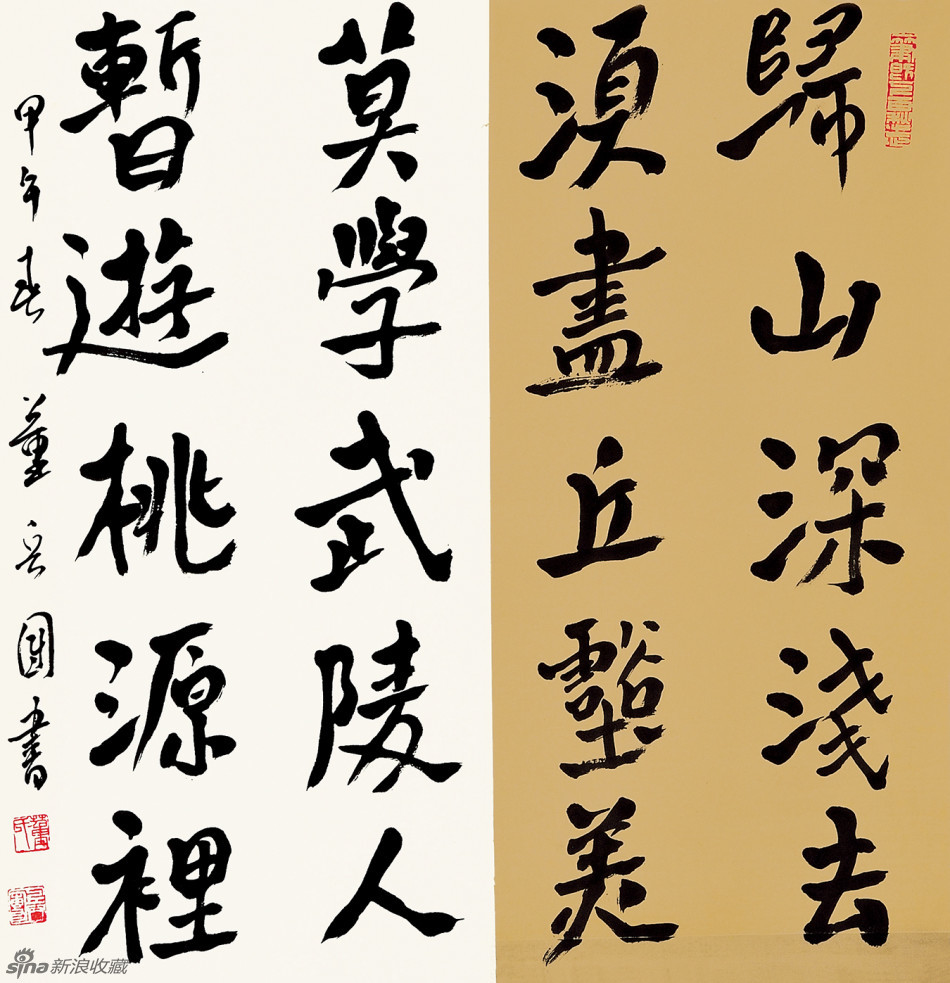 歸山深淺去
須盡丘壑美
莫學武陵人
暫遊桃源裡
甲午春 董 書
sina新浪收藏